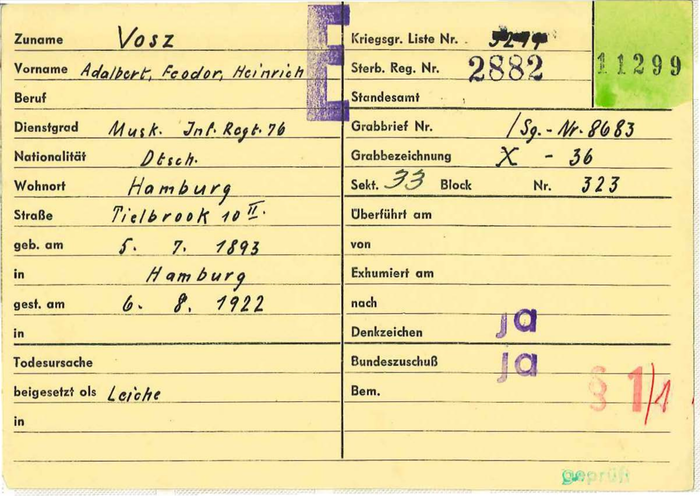 Zuname Vosz
Vorname Adalbert, Feodor, Heinrich
Beruf
Dienstgrad Musk. Inf. Regt. 76
Nationalität Dtsch.
Wohnort Hamburg
Straße Tielbrook 10 II.
geb. am 5. 7. 1893
in Hamburg
gest. am 6. 8. 1922
in
Todesursache
beigesetzt als Leiche
in
E
Kriegsgr. Liste Nr.
Sterb. Reg. Nr. 2882
11299
Standesamt
Grabbrief Nr. /Sg.-Nr. 8683
Grabbezeichnung X - 36
Sekt. 33 Block Nr. 323
Überführt am
von
Exhumiert am
nach
Denkzeichen ja
Bundeszuschuß ja
Bem. § 1/1
geprüft